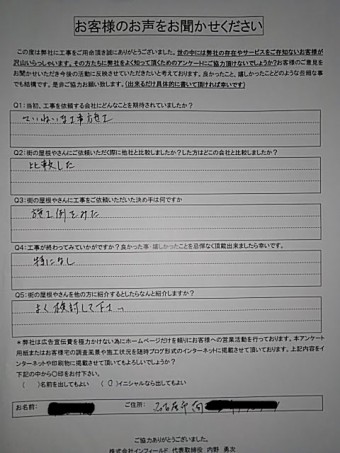 お客様のお声をお聞かせください
この度は弊社に工事をご用命頂き誠にありがとうございました。世の中には弊社の存在やサービスをご存知ないお客様が
沢山いらっしゃいます。その方たちに弊社をよく知って頂くためのアンケートにご協力頂けないでしょうか?お客様のご意見を
お聞かせいただき今後の活動に反映させていただきたいと考えております。良かったこと、嬉しかったことどのような些細な事
でも結構です。是非ご協力お願い致します。(出来るだけ具体的に書いて頂ければ幸いです)
Q1:当初、工事を依頼する会社にどんなことを期待されていましたか?
ていねいな工事施工
Q2:街の屋根やさんにご依頼いただく際に他社と比較しましたか?した方はどこの会社と比較しましたか?
比較した
Q3:街の屋根やさんに工事をご依頼いただいた決め手は何ですか
施工例をみた
Q4:工事が終わってみていかがですか?良かった事・嬉しかったことを忌憚なく頂戴出来ましたら幸いです。
特になし
Q5:街の屋根やさんを他の方に紹介するとしたらなんと紹介しますか?
よく検討して下さい
*弊社は広告宣伝費を極力かけない為にホームページだけを頼りにお客様への営業活動を行っております。本アンケート
用紙またはお客様宅の調査風景や施工状況を随時ブログ形式のインターネットに掲載させて頂いております。上記内容をイ
ンターネットや印刷物に掲載させて頂いてもよろしいでしょうか?
下記の中から〇印をお付下さい。
( )名前を出してもよい (〇)イニシャルなら出してもよい
お名前: ご住所: 名古屋市
ご協力ありがとうございました。
株式会社インフィールド 代表取締役 内野 勇次